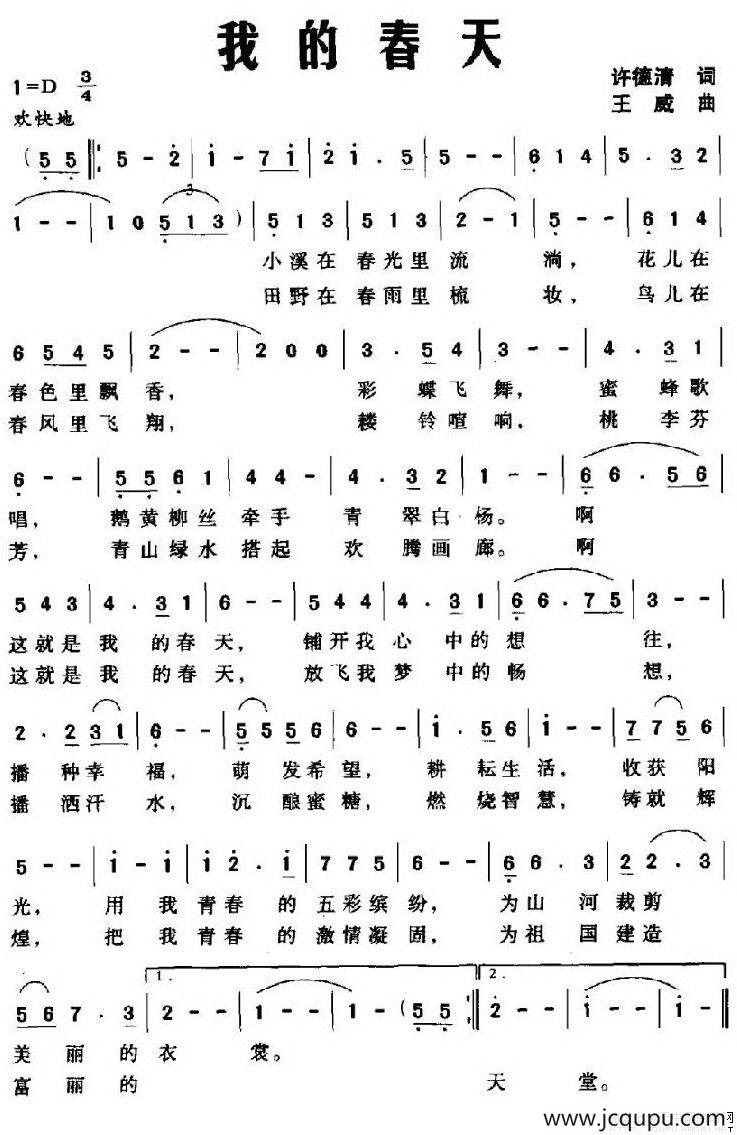 我的春天
1=D 3/4
许德清 词
王威 曲
欢快地
(5 5 ‖: 5 - 2 | 1 - 7 1 | 2 1 . 5 | 5 - - | 6 1 4 | 5 . 3 2 |
1 - - | 1 0 5 1 3 ) | 5 1 3 | 5 1 3 | 2 - 1 | 5 - - | 6 1 4 |
3
小溪在 春光里 流 淌, 花儿在
田野在 春雨里 梳 妆, 鸟儿在
6 5 4 5 | 2 - - | 2 0 0 | 3 . 5 4 | 3 - - | 4 . 3 1 |
春色里飘 香, 彩 蝶飞 舞, 蜜 蜂歌
春风里飞 翔, 耧 铃喧 响, 桃 李芬
6 - - | 5 5 6 1 | 4 4 - | 4 . 3 2 | 1 - - | 6 6 . 5 6 |
唱, 鹅黄柳丝 牵手 青 翠白 杨。 啊
芳, 青山绿水 搭起 欢 腾画 廊。 啊
5 4 3 | 4 . 3 1 | 6 - - | 5 4 4 | 4 . 3 1 | 6 6 . 7 5 | 3 - - |
这就是 我 的春 天, 铺开我 心 中的 想 往,
这就是 我 的春 天, 放飞我 梦 中的 畅 想,
2 . 2 3 1 | 6 - - | 5 5 5 6 | 6 - - | 1 . 5 6 | 1 - - | 7 7 5 6 |
播 种幸 福, 萌 发希 望, 耕 耘生 活, 收获 阳
播 洒汗 水, 沉 酿蜜 糖, 燃 烧智 慧, 铸就 辉
5 - - | 1 - 1 | 1 2 . 1 | 7 7 5 | 6 - - | 6 6 . 3 | 2 2 . 3 |
光, 用 我 青春 的 五彩缤 纷, 为山 河 裁剪
煌, 把 我 青春 的 激情凝 固, 为祖 国 建造
1. 2.
5 6 7 . 3 | 2 - - | 1 - - | 1 - ( 5 5 :‖ 2 - - | 1 - - | 1 - ‖
美 丽 的 衣 裳。
富 丽 的 天 堂。
www.jcqupu.com